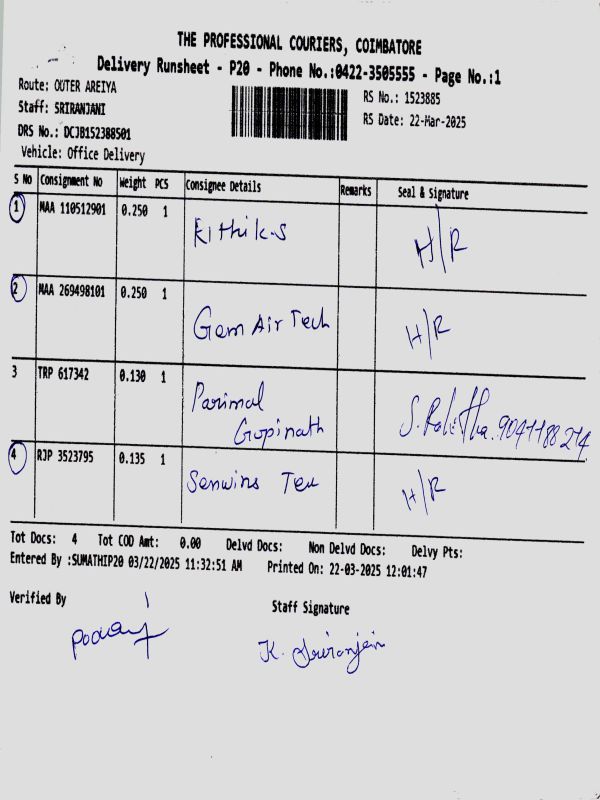 THE PROFESSIONAL COURIERS, COIMBATORE
Delivery Runsheet - P20 - Phone No.:0422-3505555 - Page No.:1
Route: OUTER AREIYA
RS No.: 1523885
Staff: SRIRANJANI
RS Date: 22-Mar-2025
DRS No.: DCJB152388501
Vehicle: Office Delivery
S No Consignment No Weight PCS Consignee Details Remarks Seal & Signature
1 MAA 110512901 0.250 1 H/R
2 MAA 269498101 0.250 1 Gem Air Tech H/R
3 TRP 617342 0.130 1 Parimal
Gopinath
4 RJP 3523795 0.135 1 H/R
Tot Docs: 4 Tot COD Amt: 0.00 Delvd Docs: Non Delvd Docs: Delvy Pts:
Entered By :SUMATHIP20 03/22/2025 11:32:51 AM Printed On: 22-03-2025 12:01:47
Verified By Staff Signature